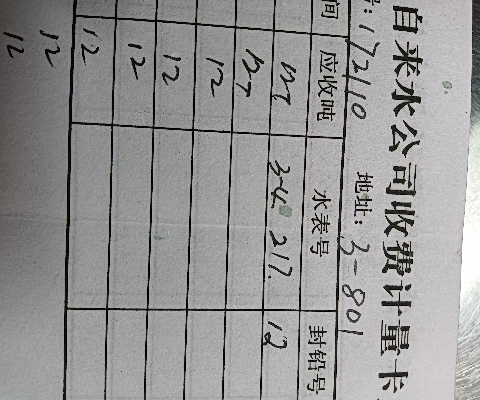 自来水公司收费计量卡
号: 172110 地址: 3-801
间 应收吨 水表号 封铅号
217. 12
12
12
12
12
12
12